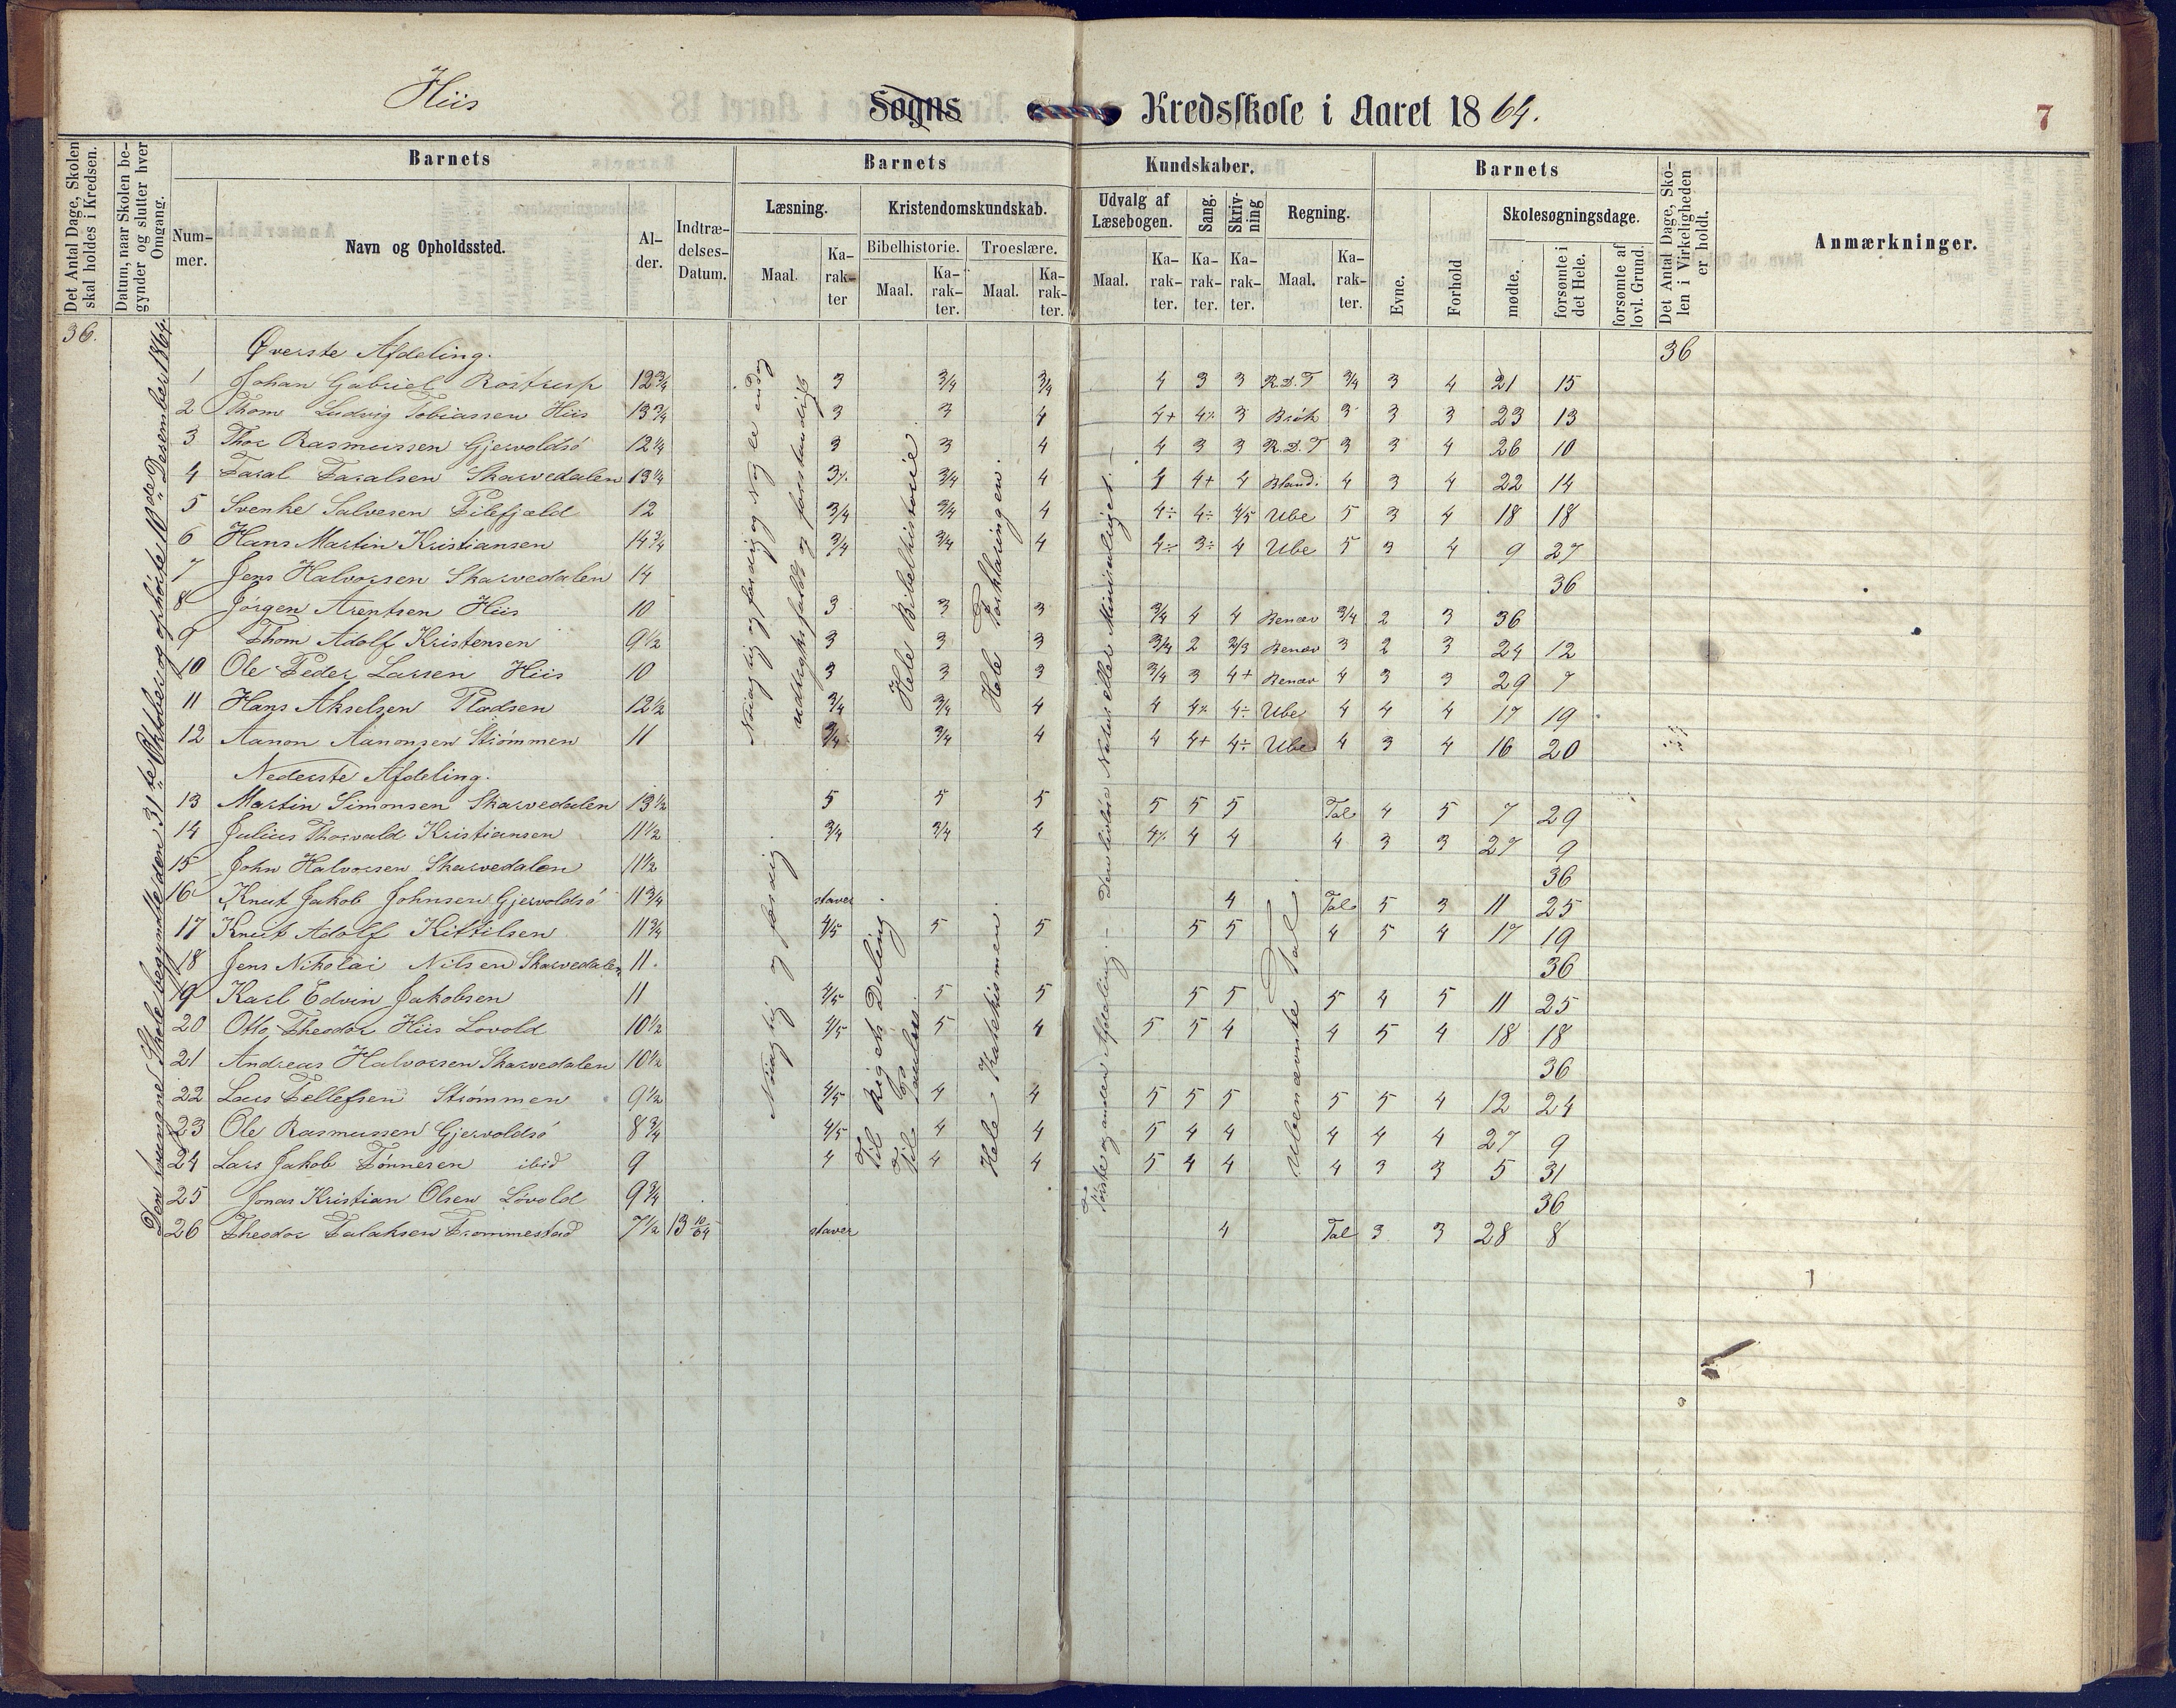 Hiis Sogns Kredsskole i Aaret 1864. 7
Det Antal Dage, Skolen skal holdes i Kredsen.
Datum, naar Skolen begynder og slutter hver Omgang.
Barnets
Nummer.
Navn og Opholdssted.
Alder.
Indtrædelses-Datum.
Barnets Kundskaber.
Læsning.
Maal.
Karakter
Kristendomskundskab.
Bibelhistorie.
Maal.
Karakter.
Troeslære.
Maal.
Karakter.
Udvalg af Læsebogen.
Maal.
Karakter.
Sang.
Karakter.
Skrivning
Karakter.
Regning.
Maal.
Karakter.
Barnets
Evne.
Forhold
Skolesøgningsdage.
mødte.
forsømte i det Hele.
forsømte af lovl. Grund.
Det Antal Dage, Skolen i Virkeligheden er holdt.
Anmærkninger.
36.
Øverste Afdeling. 36
1 Johan Gabriel Rostrup 12 3/4 3 3/4 3/4 4 3 3 R.D.T 3/4 3 4 21 15
2 Thom Ludvig Tobiassen Hiis 13 3/4 3 3 4 4+ 4% 3 Brøk 3 3 3 23 13
3 Thor Rasmussen Gjervoldsø 12 1/4 3 3 4 4 3 3 R.D.T 3 3 4 26 10
4 Taral Taralsen Skarvedalen 13 1/4 3% 3/4 4 4 4+ 4 Bland. 4 3 4 22 14
5 Svenke Salvesen Pilefjæld 12 3/4 3/4 4 4÷ 4÷ 4/5 Ube 5 3 4 18 18
6 Hans Martin Kristiansen 14 3/4 3/4 3/4 4 4÷ 3÷ 4 Ube 5 3 4 9 27
7 Jens Halvorsen Skarvedalen 14 36
8 Jørgen Arentsen Hiis 10 3 3 3 3/4 4 4 Benæv 3/4 2 3 36
9 Thom Adolf Kristensen 9 1/2 3 3 3 3/4 2 2/3 Benæv 3 2 3 24 12
10 Ole Peder Larsen Hiis 10 3 3 3 3/4 3 4+ Benæv 4 3 3 29 7
11 Hans Akselsen Pladsen 12 1/2 3/4 3/4 4 4 4% 4÷ Ube 4 4 4 17 19
12 Aanon Aanonsen Strømmen 11 3/4 3/4 4 4 4+ 4÷ Ube 4 3 4 16 20
Nederste Afdeling.
13 Martin Simonsen Skarvedalen 13 1/2 5 5 5 5 5 5 Tal 4 5 7 29
14 Julius Thorvald Kristiansen 11 1/2 3/4 3/4 4 4% 4 4 4 3 3 27 9
15 John Halvorsen Skarvedalen 11 1/2 36
16 Knut Jakob Johnsen Gjervoldsø 11 3/4 staver 4 Tal 5 3 11 25
17 Knut Adolf Kittilsen 11 3/4 4/5 5 5 5 5 4 5 4 17 19
18 Jens Nikolai Nilsen Skarvedalen 11. 36
19 Karl Edvin Jakobsen 11 4/5 5 5 5 5 5 4 5 11 25
20 Otto Theodor Hiis Lovold 10 1/2 4/5 5 4 5 5 4 4 5 4 18 18
21 Andreas Halvorsen Skarvedalen 10 1/2 36
22 Lars Tellefsen Strømmen 9 1/2 4/5 4 4 5 5 5 5 5 4 12 24
23 Ole Rasmussen Gjervoldsø 8 3/4 4/5 4 4 5 4 4 4 4 4 27 9
24 Lars Jakob Tønnesen ibid 9 4 4 4 5 4 4 4 3 3 5 31
25 Jonas Kristian Olsen Løvold 9 3/4 36
26 Theodor Falaksen Frommestad 7 1/2 13 10/64 staver 4 Tal 3 3 28 8
Den tvungne Skole begyndte den 31te Oktober og ophørte 10de Desember 1864.
Nøiagtig og færdig og udtryksfuldt og forstandigt
Hele Bibelhistorie.
Hele Forklaringen.
Nøiagtig og færdig
Til Rigets Deling
Til Paulus.
Hele Katekismen.
Første og anden Afdeling. – Den livløse Natur eller Mineralriget. –
Ubenævnte Tal.